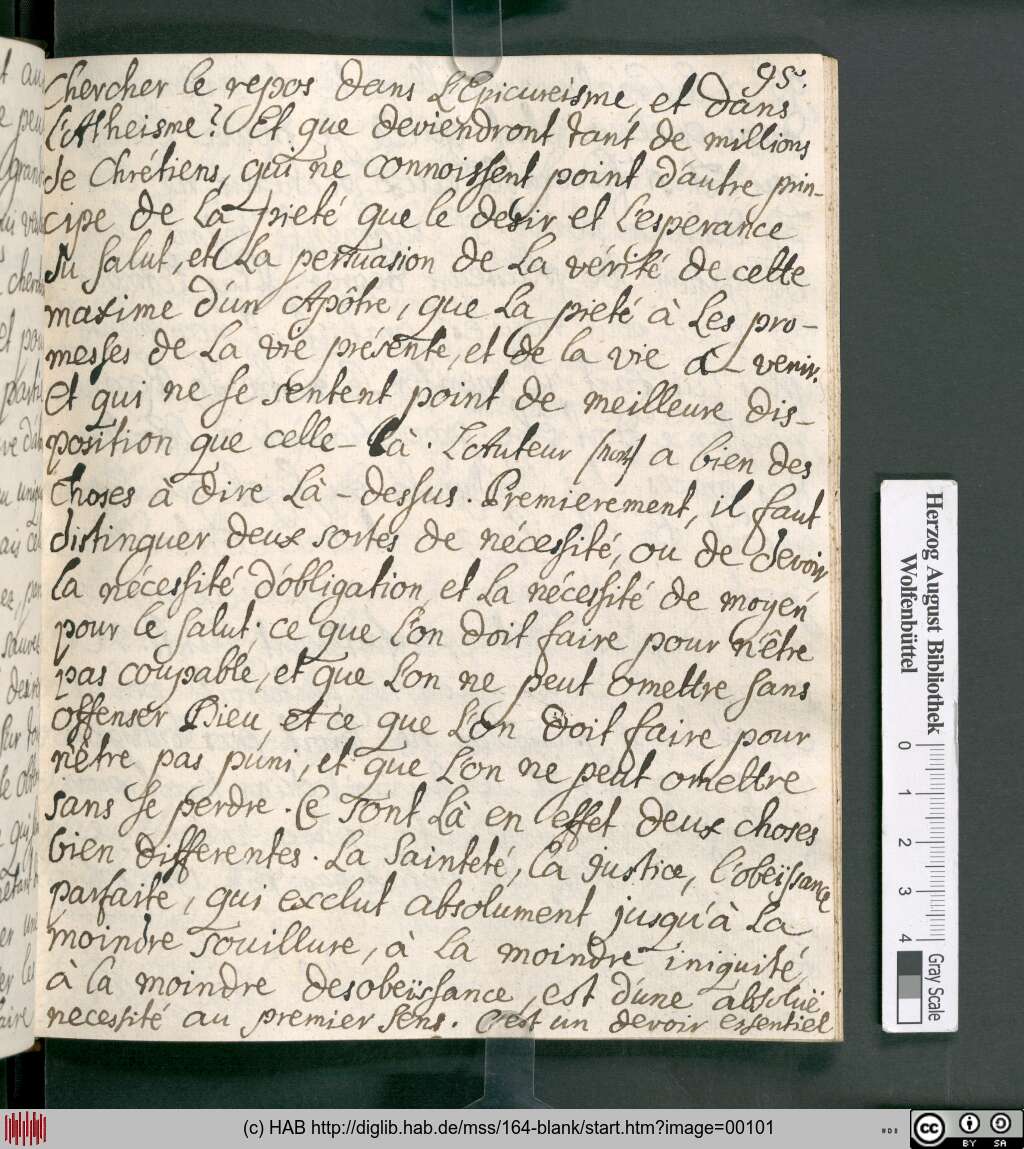 95.
Chercher le repos dans L'Epicureisme, et dans
l'Atheisme? Et que deviendront tant de millions
de Chrétiens, qui ne connoissent point d'autre prin-
cipe de La pieté que le désir et L'esperance
du salut, et La persuasion de La vérité de cette
maxime d'un Apôtre, que La pieté à Les pro-
messes de La vie présente, et de la vie à venir.
Et qui ne se sentent point de meilleure dis-
position que celle-là. L'Auteur a bien des
choses à dire Là-dessus. Premierement, il faut
distinguer deux sortes de nécessité, ou de devoir
la nécessité d'obligation, et La nécessité de moyen
pour le salut; ce que l'on doit faire pour n'être
pas coupable, et que L'on ne peut omettre sans
offenser Dieu, et ce que L'on doit faire pour
n'être pas puni, et que L'on ne peut omettre
sans se perdre. Ce sont Là en effet deux choses
bien differentes. La Sainteté, La justice, l'obeïssance
parfaite, qui exclut absolument jusqu'à La
moindre souillure, à La moindre iniquité,
à la moindre desobeïssance, est d'une absoluë
necessité au premier sens. C'est un devoir essentiel
Herzog August Bibliothek
Wolfenbüttel
0 1 2 3 4
Gray Scale
(c) HAB http://diglib.hab.de/mss/164-blank/start.htm?image=00101
cc BY SA